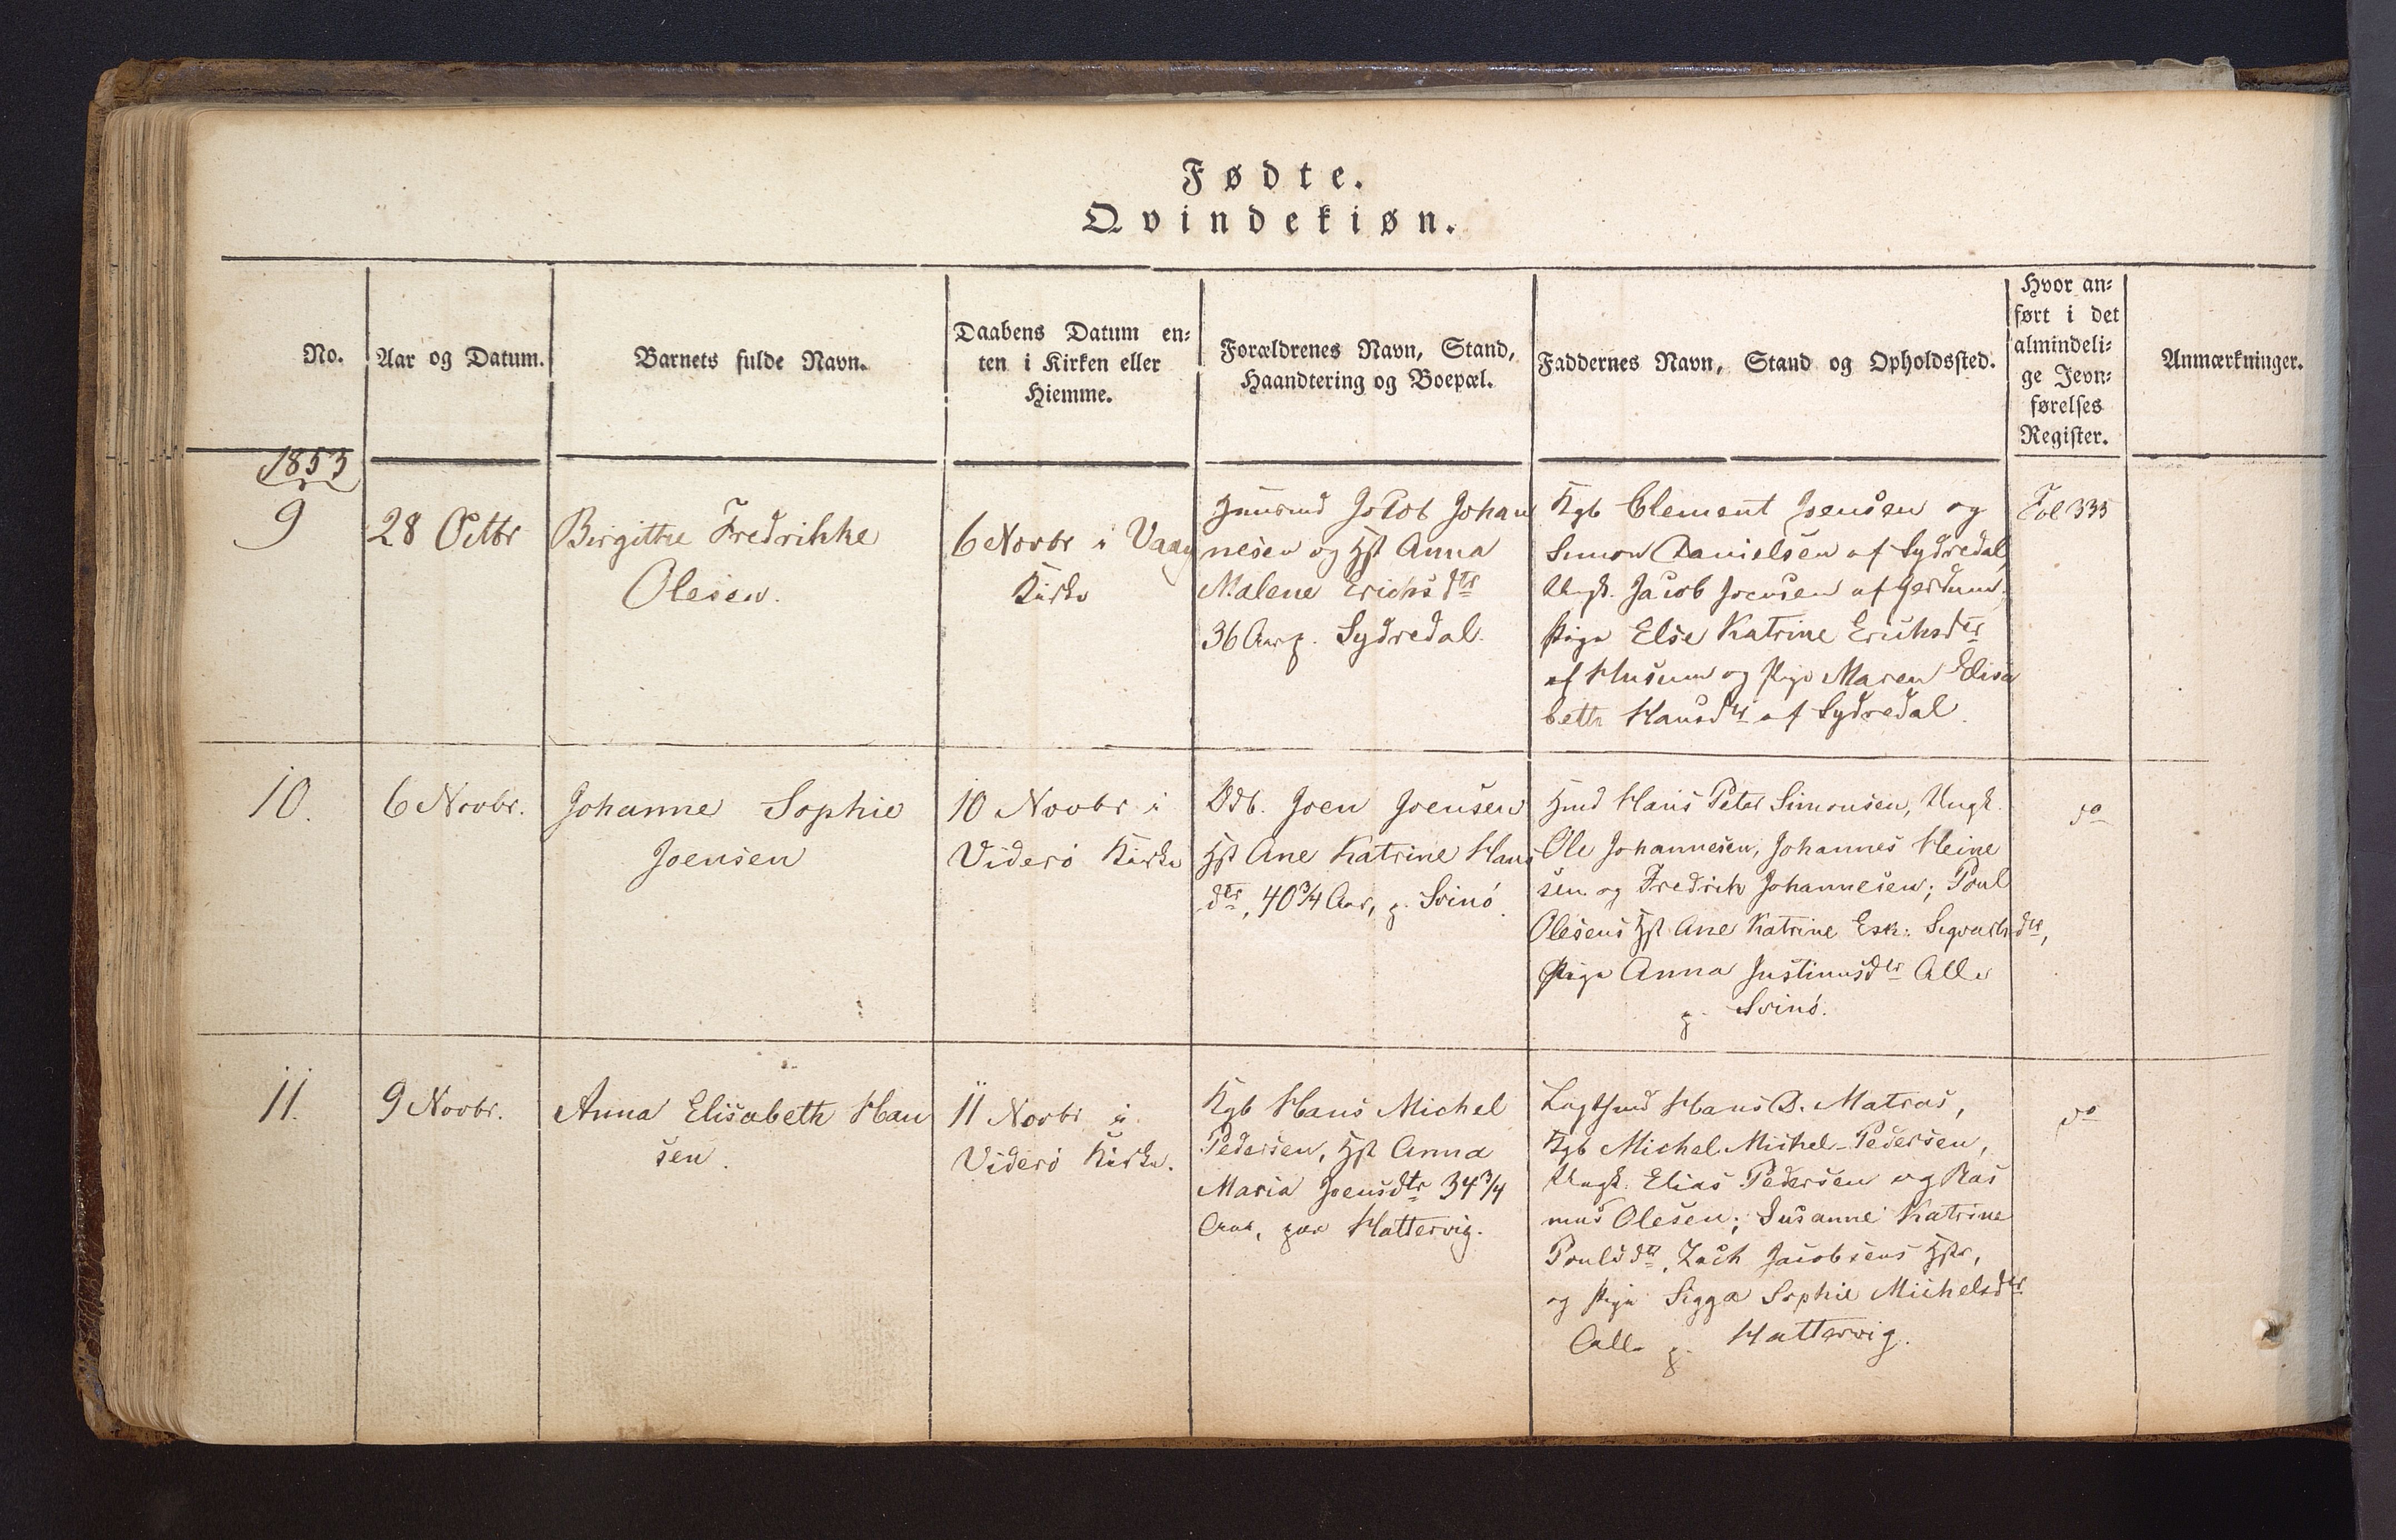 Fødte.
Qvindekiøn.
No.
Aar og Datum.
Barnets fulde Navn.
Daabens Datum en-
ten i Kirken eller
Hiemme.
Forældrenes Navn, Stand,
Haandtering og Boepæl.
Faddernes Navn, Stand og Opholdssted.
Hvor an-
ført i det
almindeli-
ge Jevn-
førelses
Register.
Anmærkninger.
1853
9
28 Octbr
Birgitte Fredrikke
Olesen.
6 Novbr i Vaag
Kirke
Jakob Johan
nesen og Hst Anna
Malene Erichsdtr
36 Aar p. Sydredal.
Kgb Clement Joensen og
Simon Danielsen af Sydredal,
Ungk. Jacob Joensen af
Pige Else Katrine Erichsdtr
af Husum og Pige Maren Elisa
beth Hansdtr af Sydredal.
Fol 335
10.
6 Novbr.
Johanne Sophie
Joensen
10 Novbr i
Viderö Kirke
Odb. Joen Joensen
Hst Ane Katrine Hans
dtr, 40 3/4 Aar, p. Svinö.
Hmd Hans Peter Simonsen, Ungk.
Ole Johannesen, Johannes Heine
sen og Fredrik Johannesen; Poul
Olesens Hst Ane Katrine Esk: Sigvartsdtr,
Pige Anna Justinusdtr Alle
p. Svinö.
do
11.
9 Novbr.
Anna Elisabeth Han
sen.
11 Novbr i
Viderö Kirke.
Kgb Hans Michel
Pedersen, Hst Anna
Maria Joensdtr 34 3/4
Aar, paa Hattervig.
Hans D. Matras,
Kgb Michel Michel-Pedersen,
Ungk. Elias Pedersen og Ras
mus Olesen; Susanne Katrine
Poulsdtr, Zach Jacobsens Hstr,
og Pige Sigga Sophie Michelsdtr
Alle p. Hattervig.
do